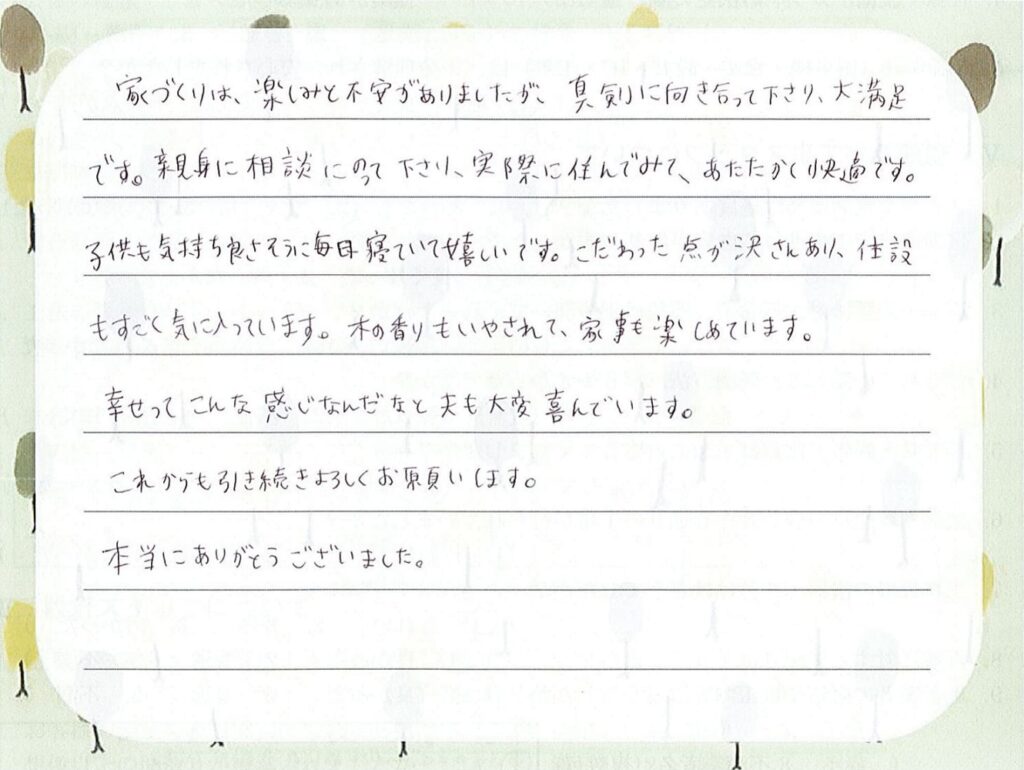 家づくりは、楽しみと不安がありましたが、真剣に向き合って下さり、大満足
です。親身に相談にのって下さり、実際に住んでみて、あたたかく快適です。
子供も気持ち良さそうに毎日寝ていて嬉しいです。こだわった点が沢さんあり、住設
もすごく気に入っています。木の香りもいやされて、家事も楽しめています。
幸せってこんな感じなんだなと夫も大変喜んでいます。
これからも引き続きよろしくお願いします。
本当にありがとうございました。